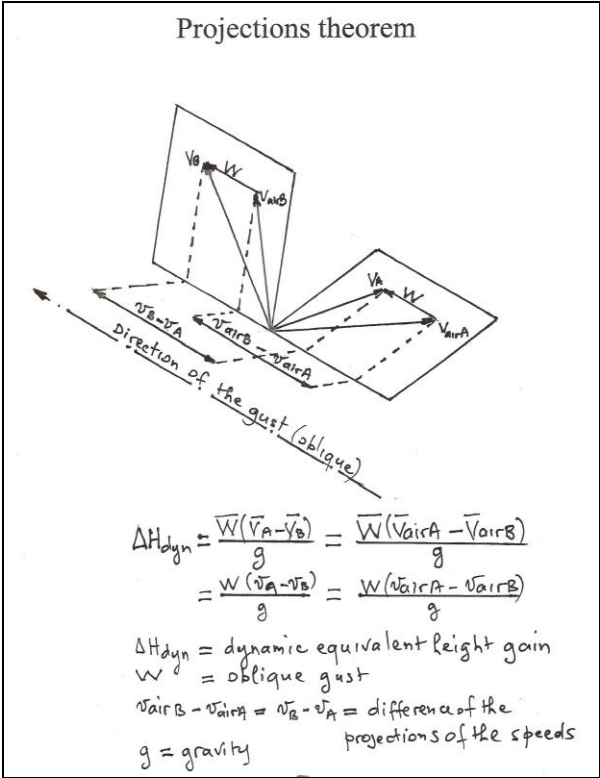 Projections theorem
VB
W
VairB
VA
W
VairA
vB-vA
vairB - vairA
Direction of the gust (oblique)
ΔHdyn = W̅(V̅A-V̅B)/g = W̅(V̅airA - V̅airB)/g
= W(vA-vB)/g = W(vairA - vairB)/g
ΔHdyn = dynamic equivalent height gain
W = oblique gust
vairB - vairA = vB - vA = difference of the
projections of the speeds
g = gravity